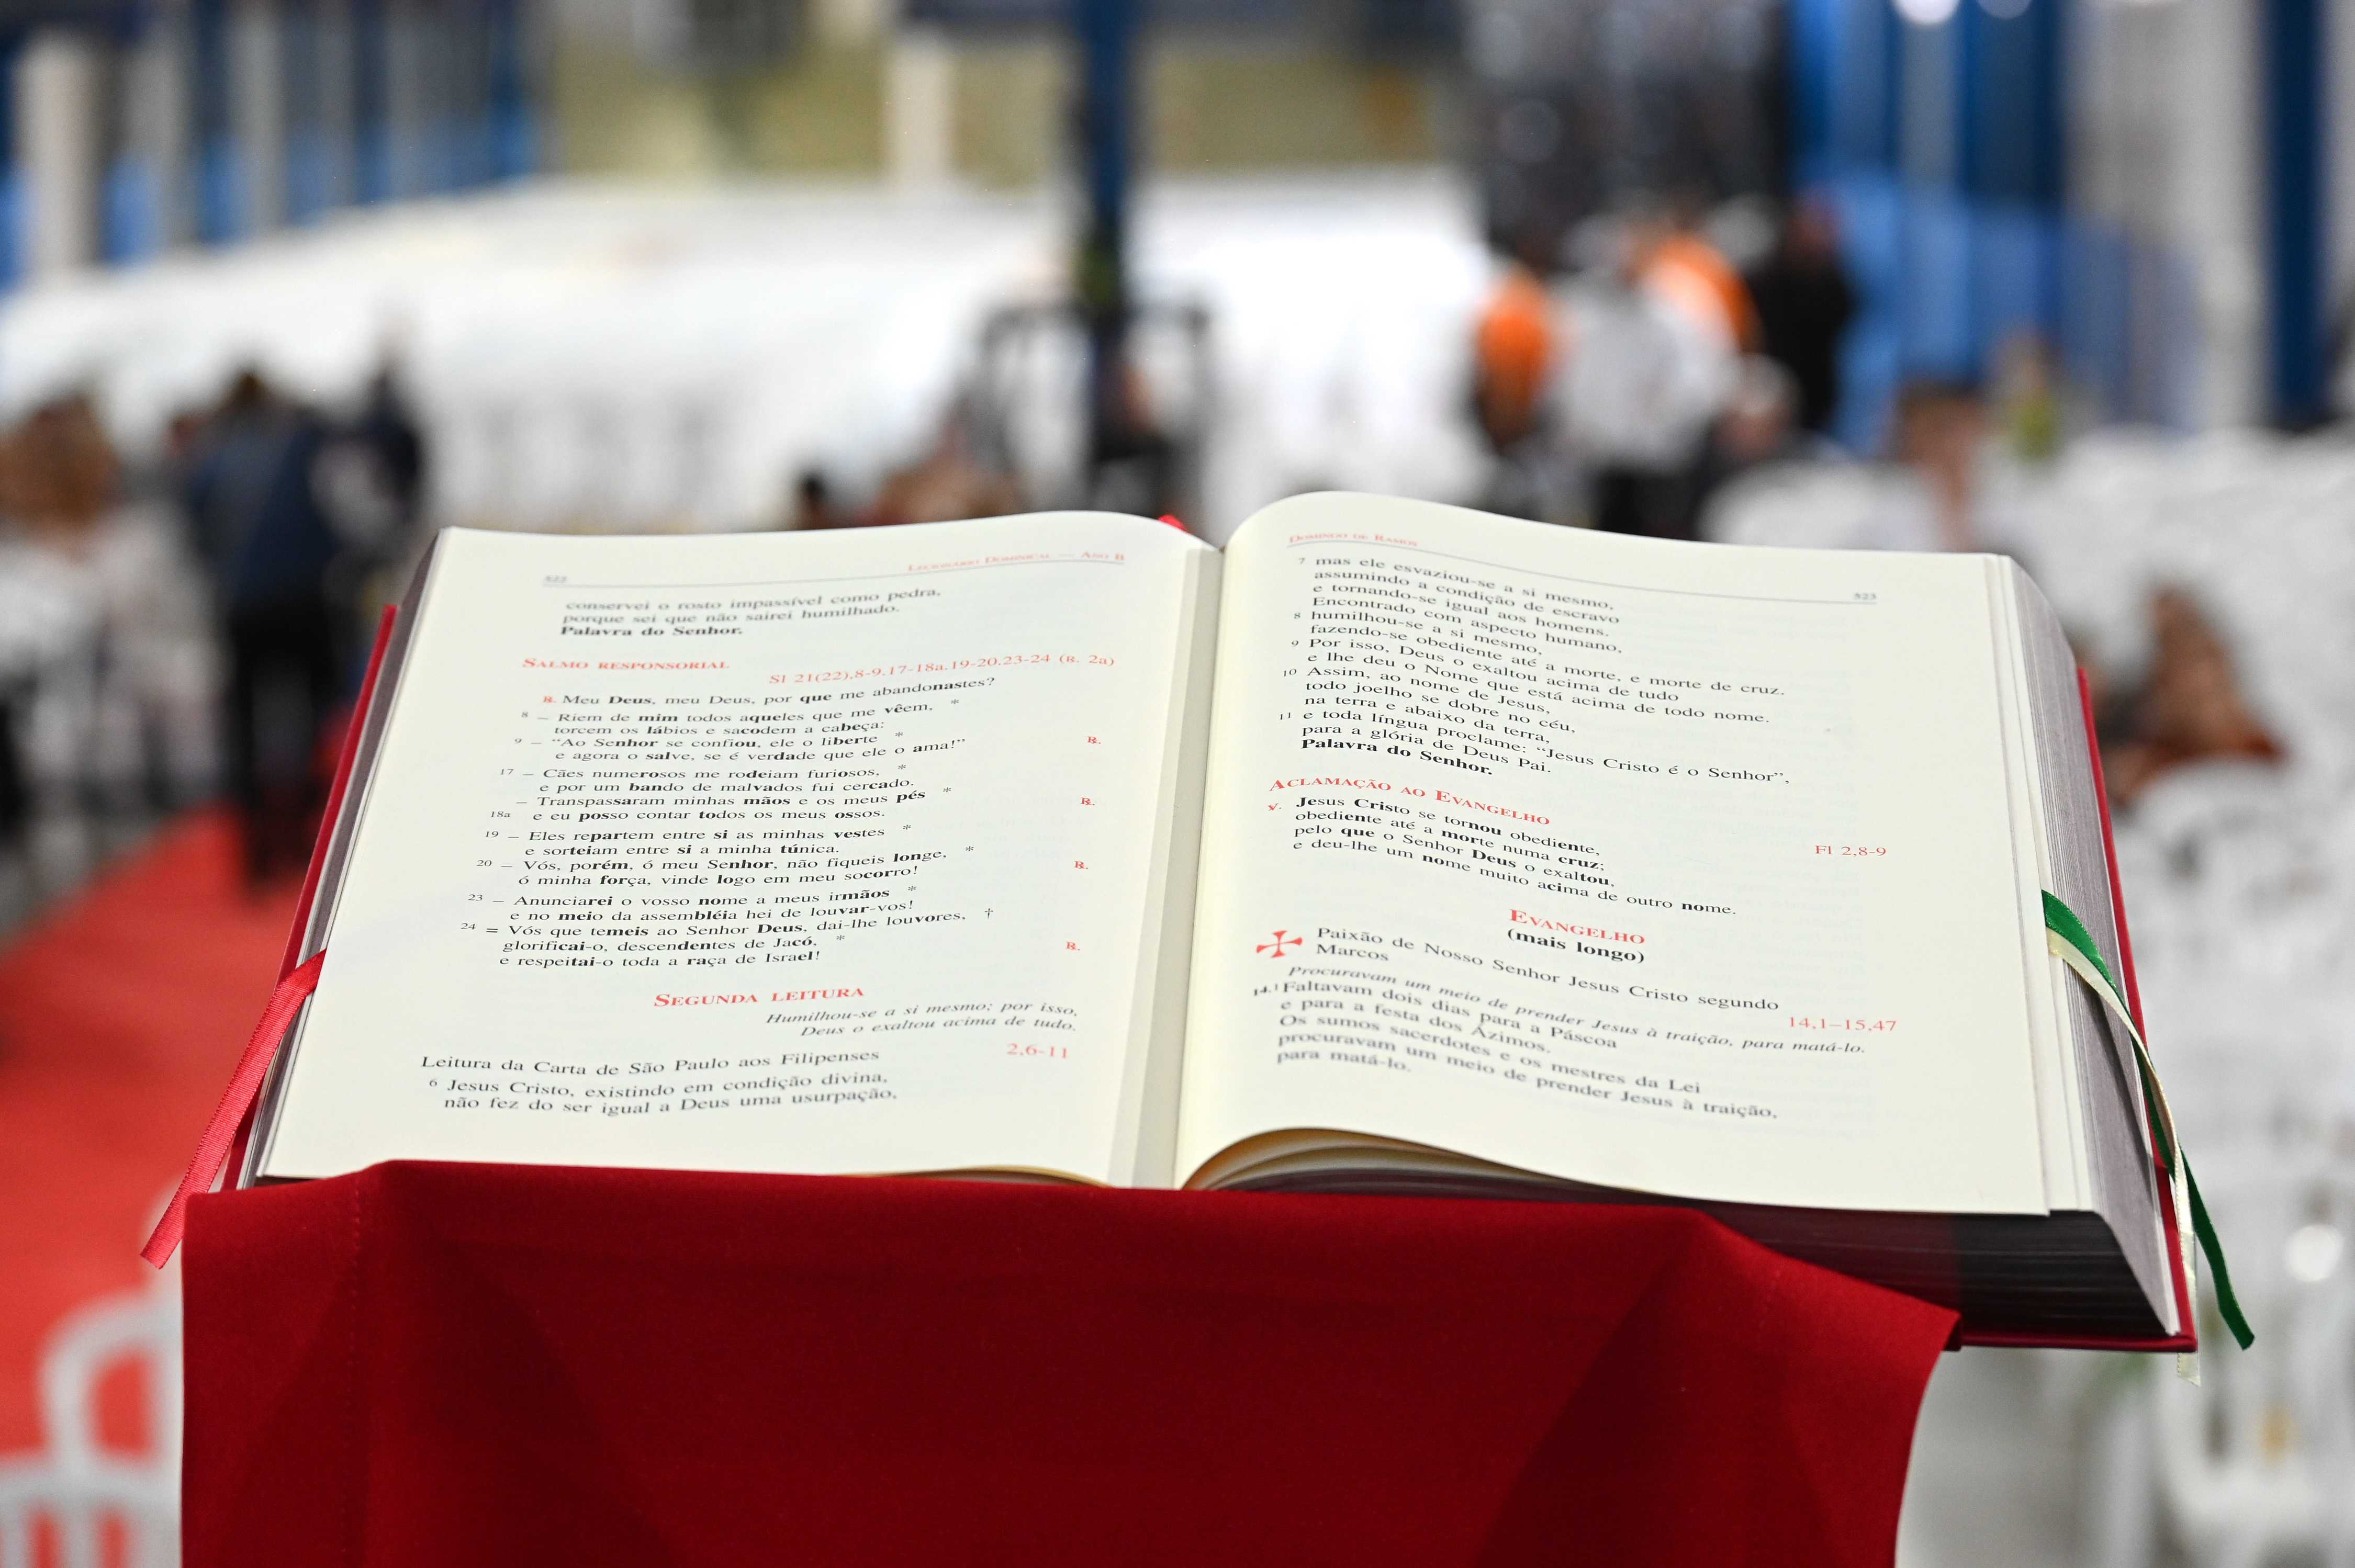 522
LECIONÁRIO DOMINICAL — ANO B
conservei o rosto impassível como pedra,
porque sei que não sairei humilhado.
Palavra do Senhor.
SALMO RESPONSORIAL
Sl 21(22),8-9.17-18a.19-20.23-24 (R. 2a)
R. Meu Deus, meu Deus, por que me abandonastes?
8 – Riem de mim todos aqueles que me vêem, *
torcem os lábios e sacodem a cabeça:
9 – “Ao Senhor se confiou, ele o liberte *
e agora o salve, se é verdade que ele o ama!” R.
17 – Cães numerosos me rodeiam furiosos, *
e por um bando de malvados fui cercado.
– Transpassaram minhas mãos e os meus pés *
18a e eu posso contar todos os meus ossos. R.
19 – Eles repartem entre si as minhas vestes *
e sorteiam entre si a minha túnica.
20 – Vós, porém, ó meu Senhor, não fiqueis longe, *
ó minha força, vinde logo em meu socorro! R.
23 – Anunciarei o vosso nome a meus irmãos *
e no meio da assembléia hei de louvar-vos!
24 = Vós que temeis ao Senhor Deus, dai-lhe louvores, †
glorificai-o, descendentes de Jacó, *
e respeitai-o toda a raça de Israel! R.
SEGUNDA LEITURA
Humilhou-se a si mesmo; por isso,
Deus o exaltou acima de tudo.
Leitura da Carta de São Paulo aos Filipenses 2,6-11
6 Jesus Cristo, existindo em condição divina,
não fez do ser igual a Deus uma usurpação,
DOMINGO DE RAMOS
523
7 mas ele esvaziou-se a si mesmo,
assumindo a condição de escravo
e tornando-se igual aos homens.
Encontrado com aspecto humano,
8 humilhou-se a si mesmo,
fazendo-se obediente até a morte, e morte de cruz.
9 Por isso, Deus o exaltou acima de tudo
e lhe deu o Nome que está acima de todo nome.
10 Assim, ao nome de Jesus,
todo joelho se dobre no céu,
na terra e abaixo da terra,
11 e toda língua proclame: “Jesus Cristo é o Senhor”,
para a glória de Deus Pai.
Palavra do Senhor.
ACLAMAÇÃO AO EVANGELHO
Fl 2,8-9
V. Jesus Cristo se tornou obediente,
obediente até a morte numa cruz;
pelo que o Senhor Deus o exaltou,
e deu-lhe um nome muito acima de outro nome.
EVANGELHO
(mais longo)
Paixão de Nosso Senhor Jesus Cristo segundo
Marcos
14,1–15,47
Procuravam um meio de prender Jesus à traição, para matá-lo.
14,1 Faltavam dois dias para a Páscoa
e para a festa dos Ázimos.
Os sumos sacerdotes e os mestres da Lei
procuravam um meio de prender Jesus à traição,
para matá-lo.